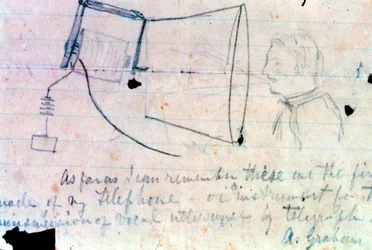 As far as I can remember these are the fir
made of my telephone - or "instrument for t
ransmission of vocal utterance by telegraph
A. Graham